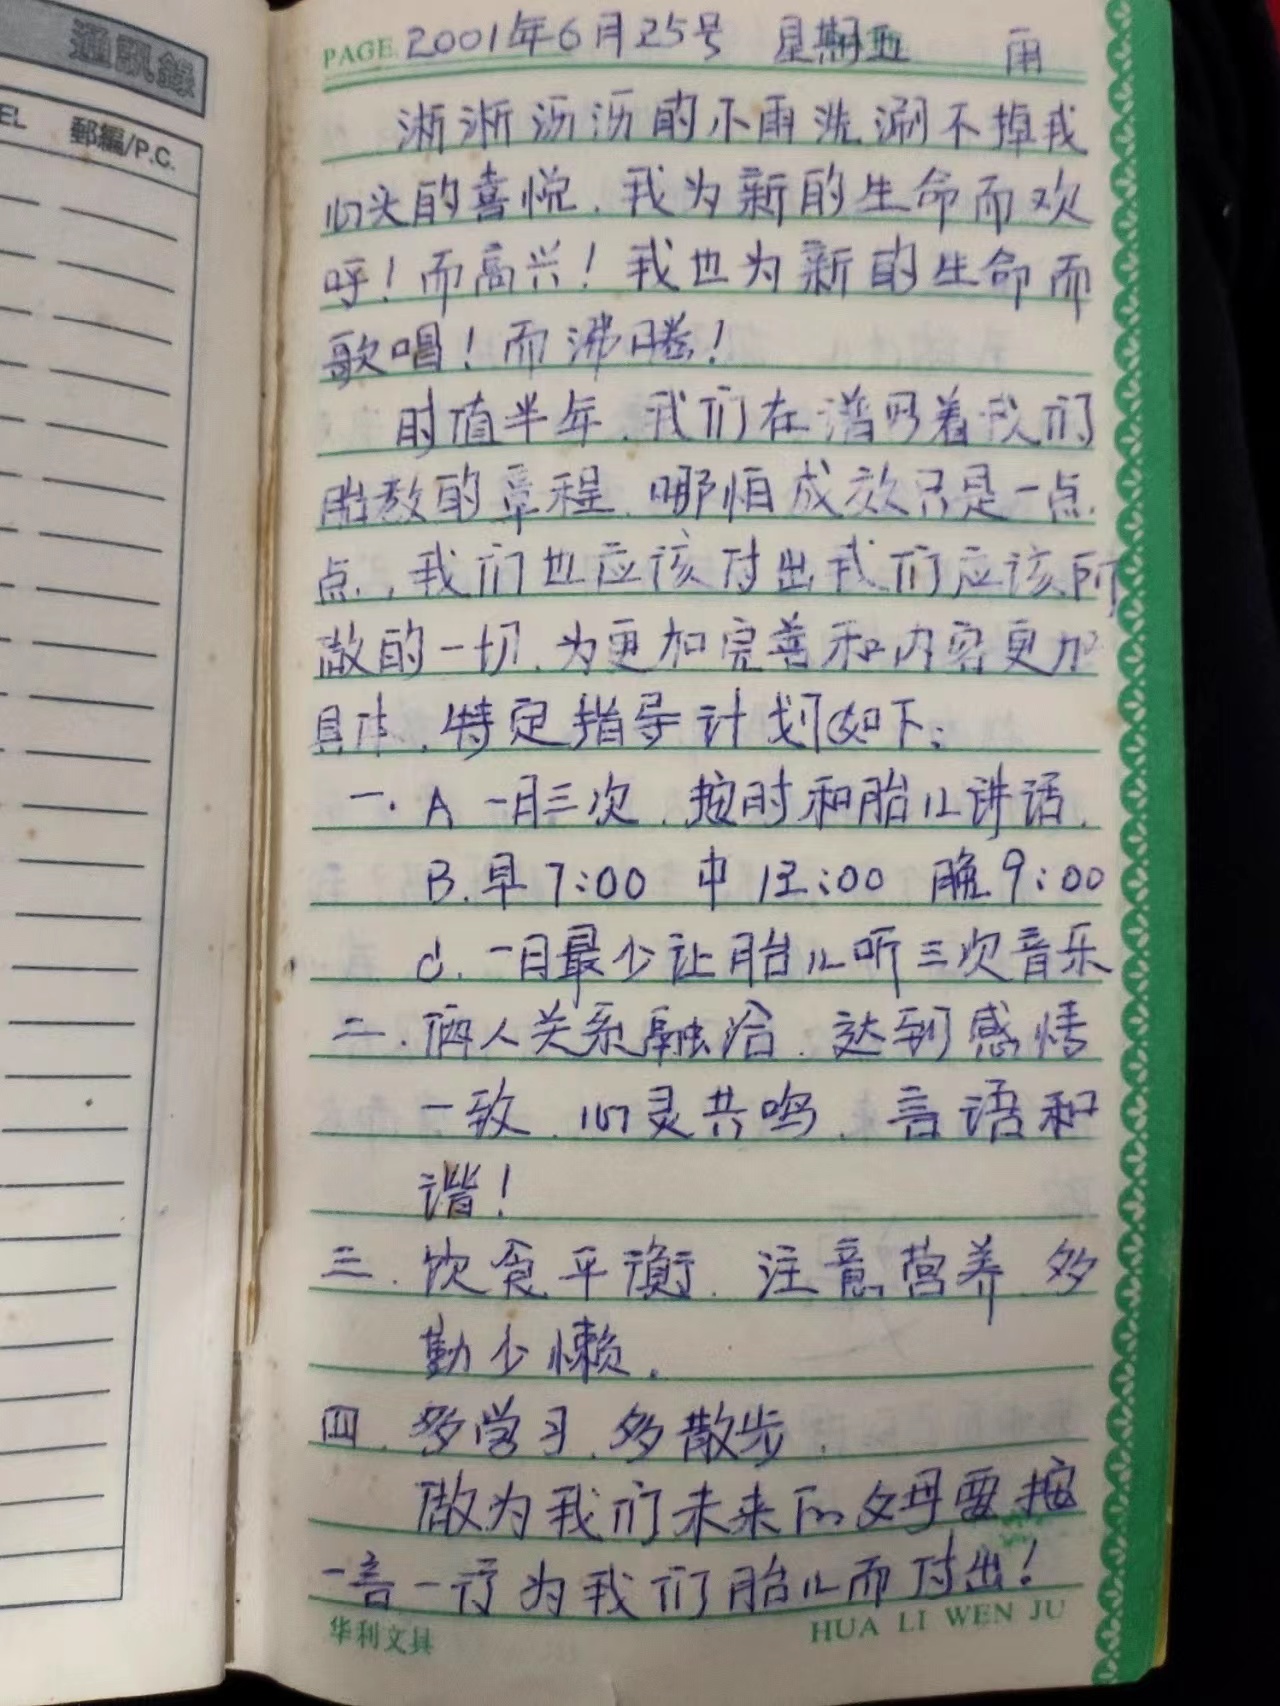 通訊錄
EL 郵編/P.C.
PAGE 2001年6月25号 星期五 雨
淅淅沥沥的小雨洗涮不掉我
心头的喜悦.我为新的生命而欢
呼！而高兴！我也为新的生命而
歌唱！而沸腾！
时值半年.我们在谱写着我们
胎教的章程.哪怕成效只是一点
点,我们也应该付出我们应该所
做的一切.为更加完善和内容更加
具体.特定指导计划如下:
一.A 一日三次.按时和胎儿讲话.
B.早7:00 中12:00 晚9:00
C.一日最少让胎儿听三次音乐
二.俩人关系融洽.达到感情
一致.心灵共鸣.言语和
谐！
三.饮食平衡.注意营养.多
勤少懒.
四.多学习.多散步.
做为我们未来的父母要按
一言一行为我们胎儿而付出！
华利文具 HUA LI WEN JU